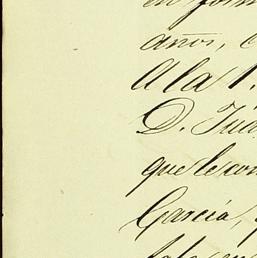 en form
años, c
A la 1.
D. Juli
que le con
García, y